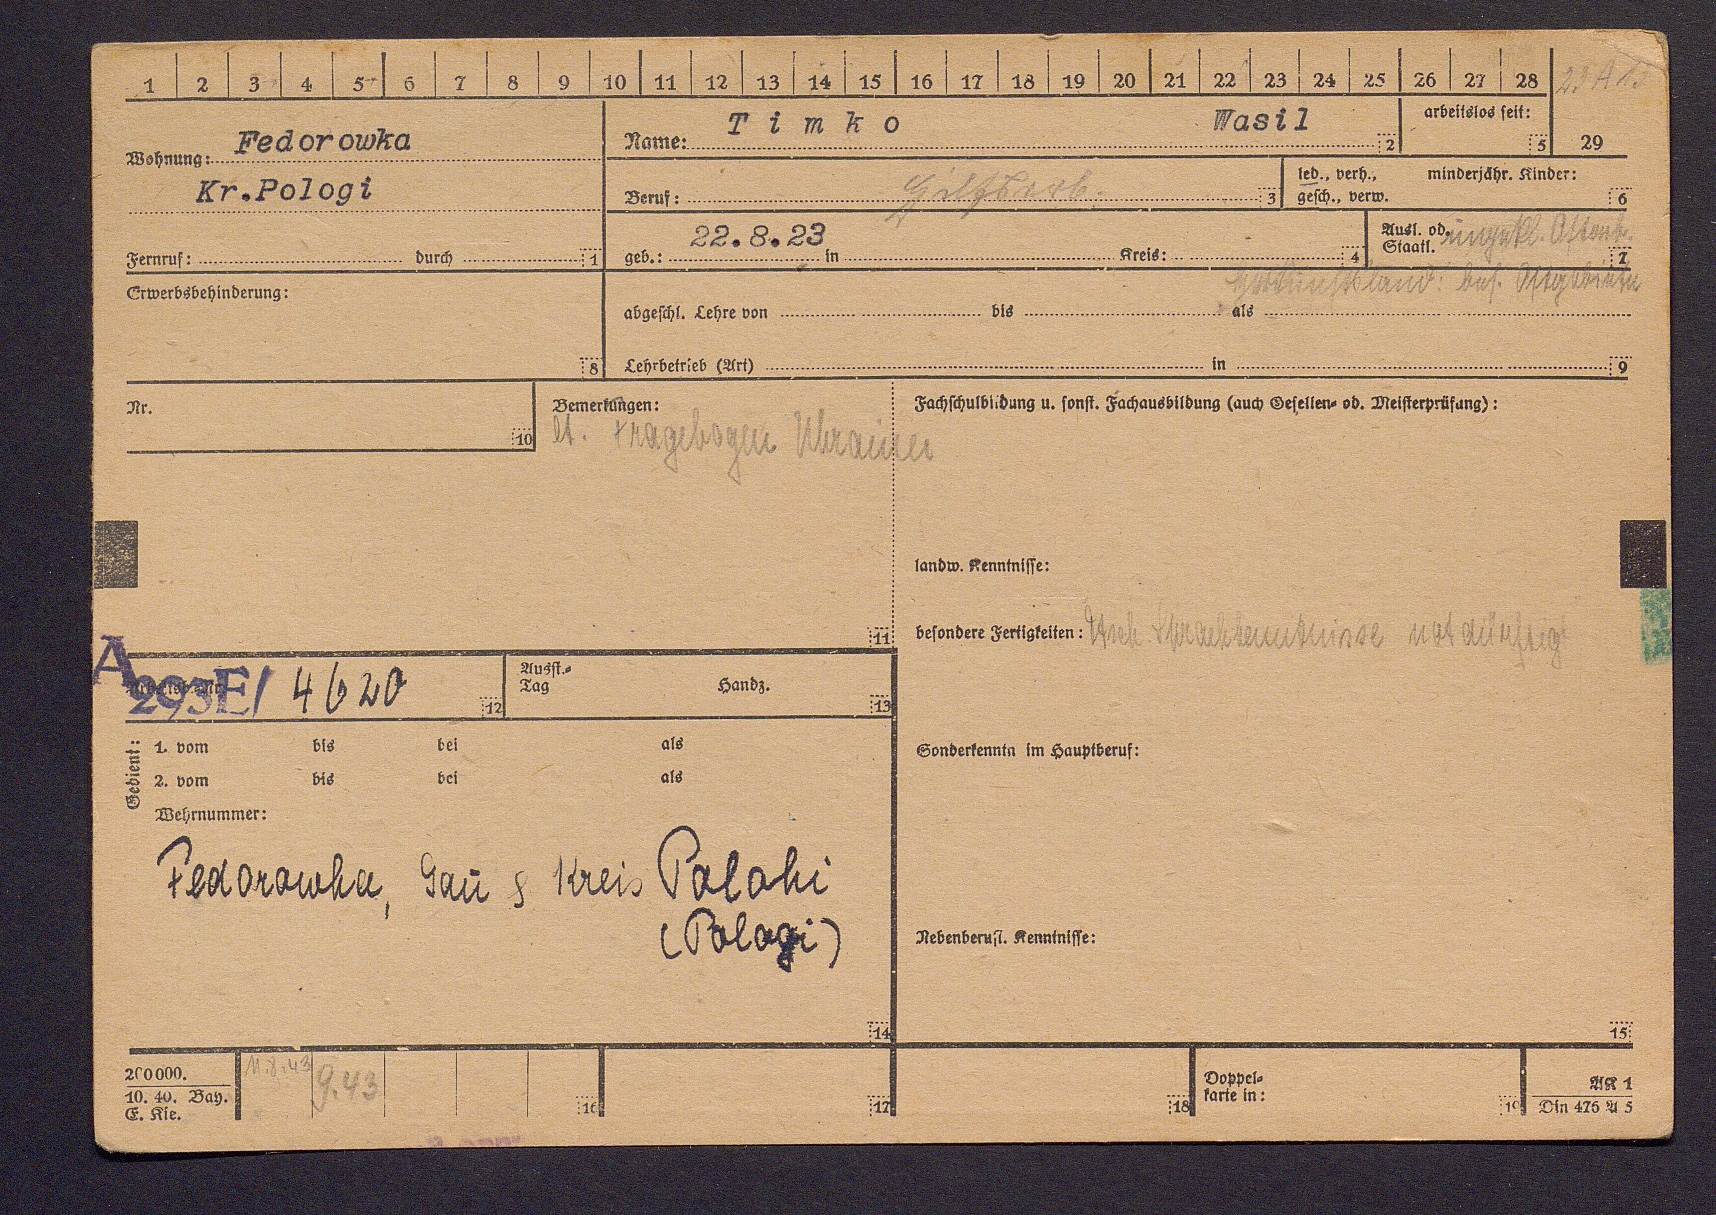 1 2 3 4 5 6 7 8 9 10 11 12 13 14 15 16 17 18 19 20 21 22 23 24 25 26 27 28
23 A 13
29
Wohnung: Fedorowka
Kr.Pologi
Fernruf: durch 1
Name: Timko Wasil 2
arbeitslos seit: 5
Beruf: Hilfsarb. 3
led., verh., gesch., verw.
minderjähr. Kinder: 6
geb.: 22.8.23 in Kreis: 4
Ausl. od. Staatl. ungekl. Ostarb. 7
Herkunftsland: bes. Ostgebiete
Erwerbsbehinderung: 8
abgeschl. Lehre von bis als
Lehrbetrieb (Art) in 9
Nr. 10
Bemerkungen:
lt. Fragebogen Ukrainer
11
Fachschulbildung u. sonst. Fachausbildung (auch Gesellen- od. Meisterprüfung):
landw. Kenntnisse:
besondere Fertigkeiten: Dtsch Sprachkenntnisse notdürftig
Sonderkenntn im Hauptberuf:
Nebenberufl. Kenntnisse:
15
A 293E/ 4620 12
Ausst.-Tag Handz. 13
Gedient:
1. vom bis bei als
2. vom bis bei als
Wehrnummer:
Fedorowka, Gau & Kreis Polohi
(Pologi)
14
200000.
10. 40. Bay.
E. Kie.
11.8.43
9.43
16 17 18
Doppelkarte in: 19
AK 1
Din 476 A 5